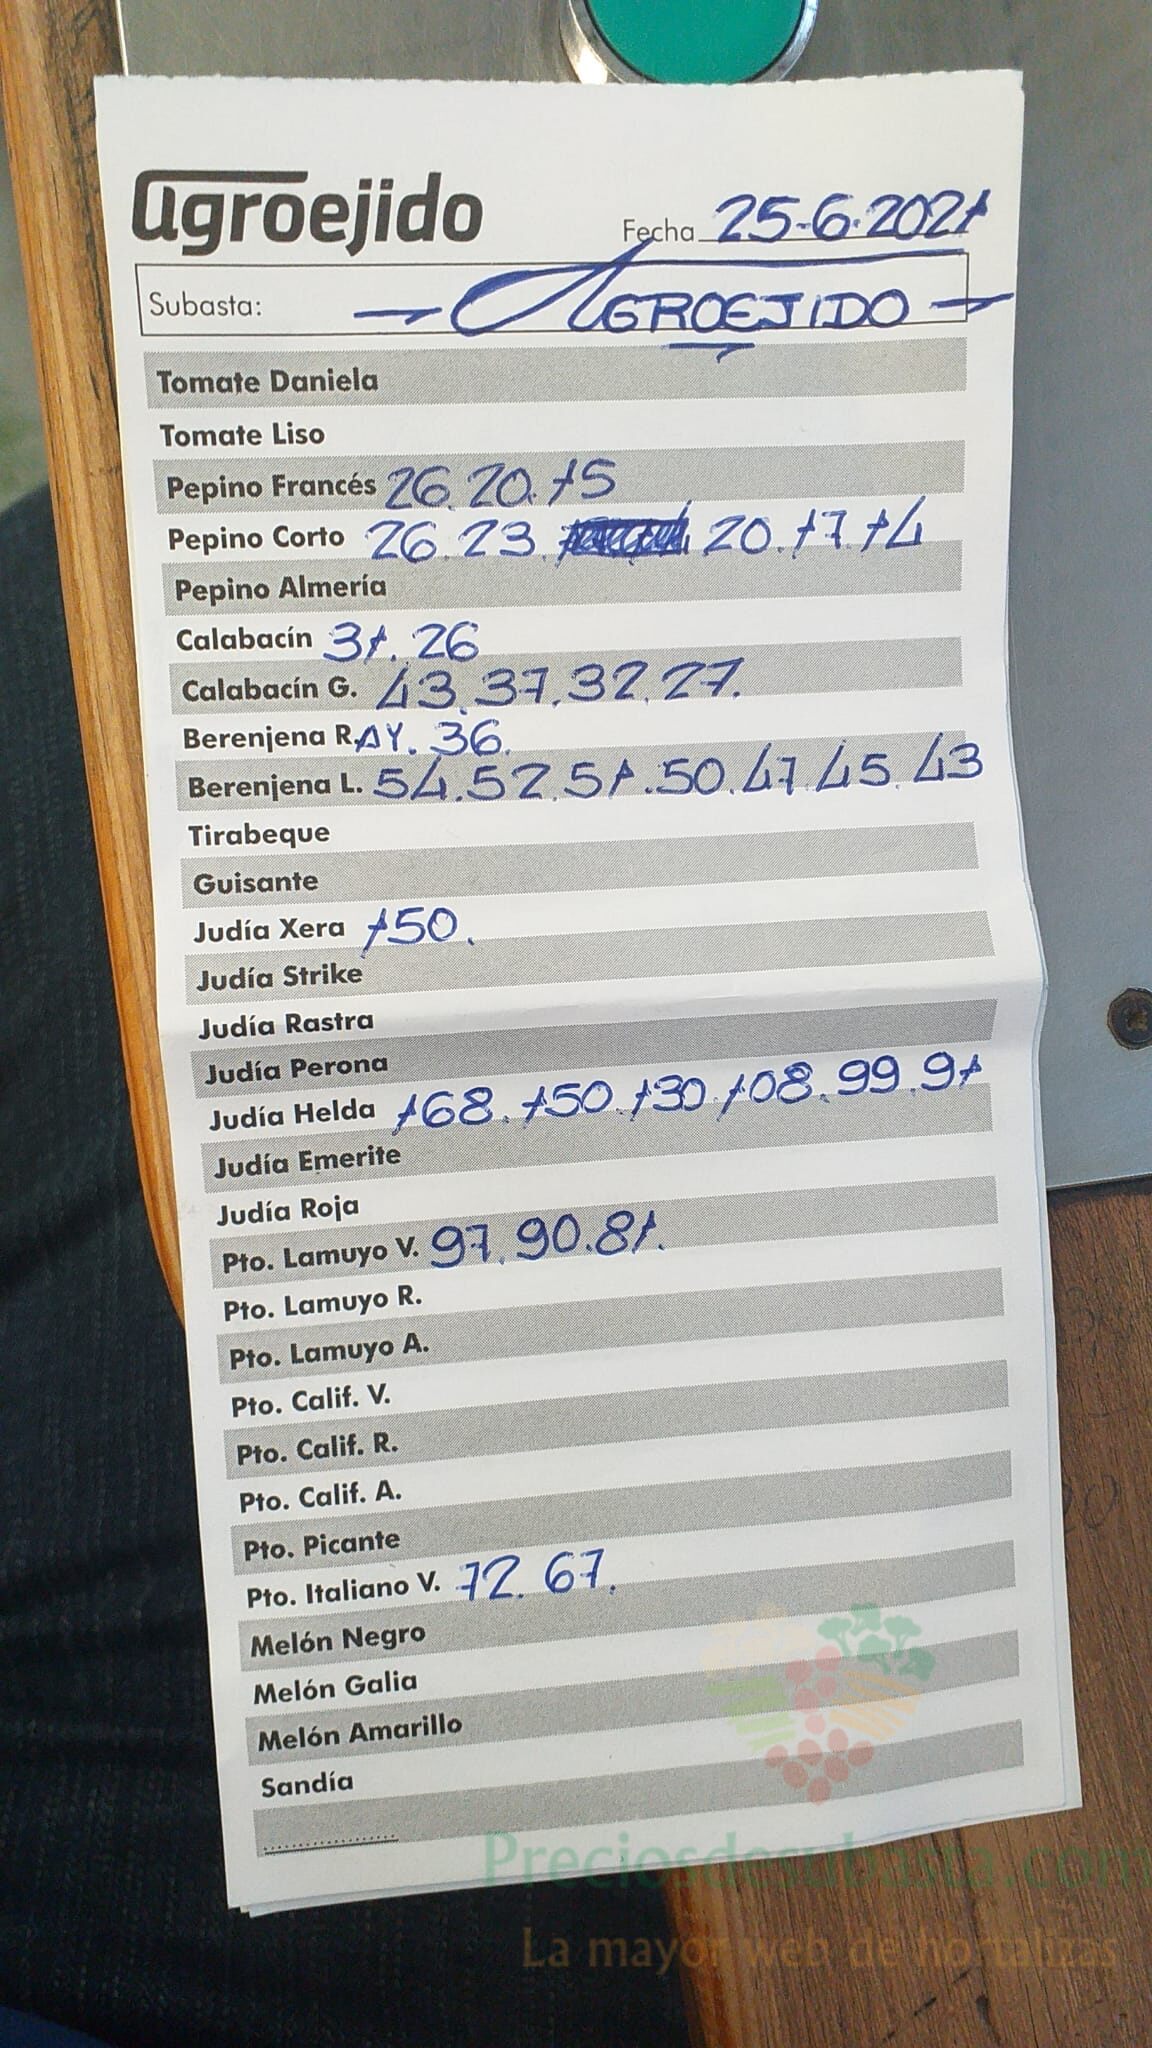 agroejido
Fecha 25-6-2021
Subasta: AGROEJIDO
Tomate Daniela
Tomate Liso
Pepino Francés 26. 20. 15
Pepino Corto 26. 23. 20. 17. 14
Pepino Almería
Calabacín 31. 26
Calabacín G. 43. 37. 32. 27.
Berenjena R. AY. 36.
Berenjena L. 54. 52. 51. 50. 47. 45. 43
Tirabeque
Guisante
Judía Xera 150.
Judía Strike
Judía Rastra
Judía Perona
Judía Helda 168. 150. 130. 108. 99. 91
Judía Emerite
Judía Roja
Pto. Lamuyo V. 97. 90. 81.
Pto. Lamuyo R.
Pto. Lamuyo A.
Pto. Calif. V.
Pto. Calif. R.
Pto. Calif. A.
Pto. Picante
Pto. Italiano V. 72. 67.
Melón Negro
Melón Galia
Melón Amarillo
Sandía
Preciosdesubasta.com
La mayor web de hortalizas